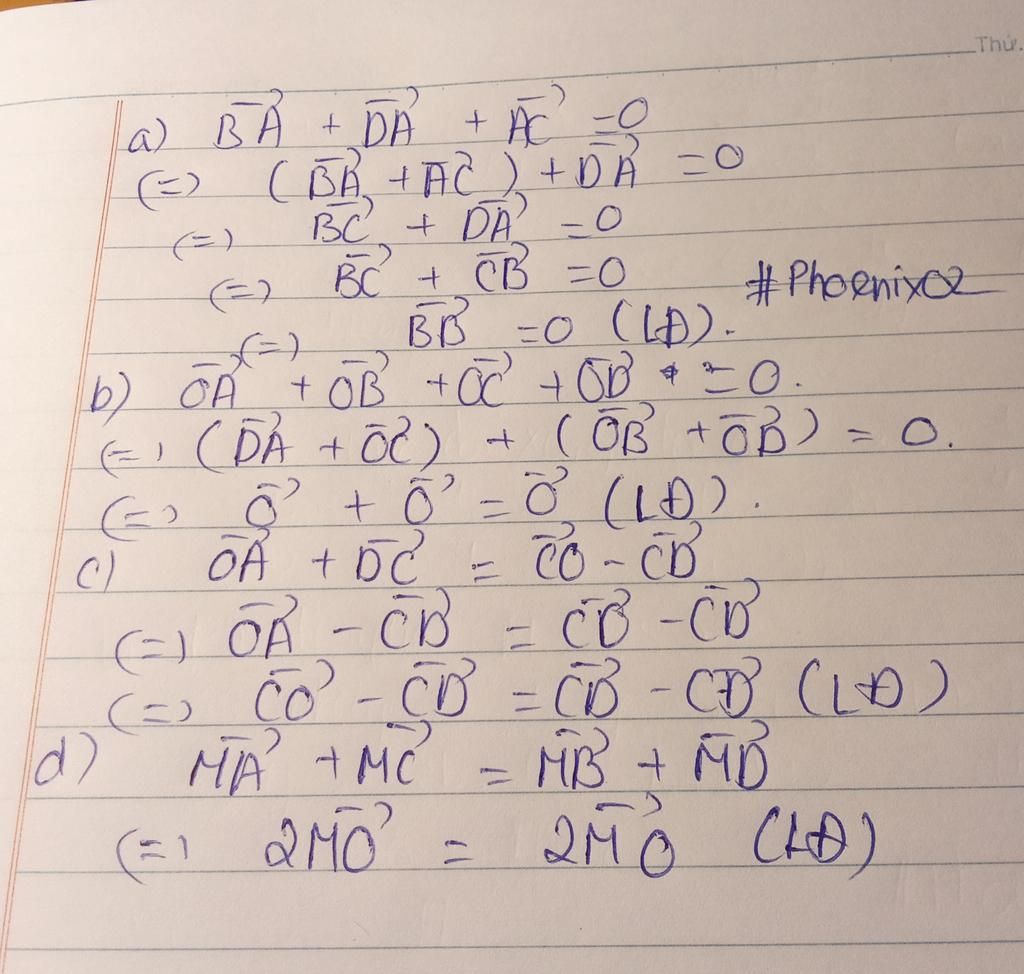 Thứ.
a) BA + DA + AC = 0
(=) (BA + AC) + DA = 0
(=) BC + DA = 0
(=) BC + CB = 0
#Phoenix02
(=) BB = 0 (LĐ).
b) OA + OB + OC + OD = 0.
(=) (DA + OC) + (OB + OD) = 0.
(=) O + O = O (LĐ).
c) OA + DC = CO - CD
(=) OA - CD = CD - CD
(=) CO - CD = CD - CD (LĐ)
d) MA + MC = MB + MD
(=) 2MO = 2MO (LĐ)